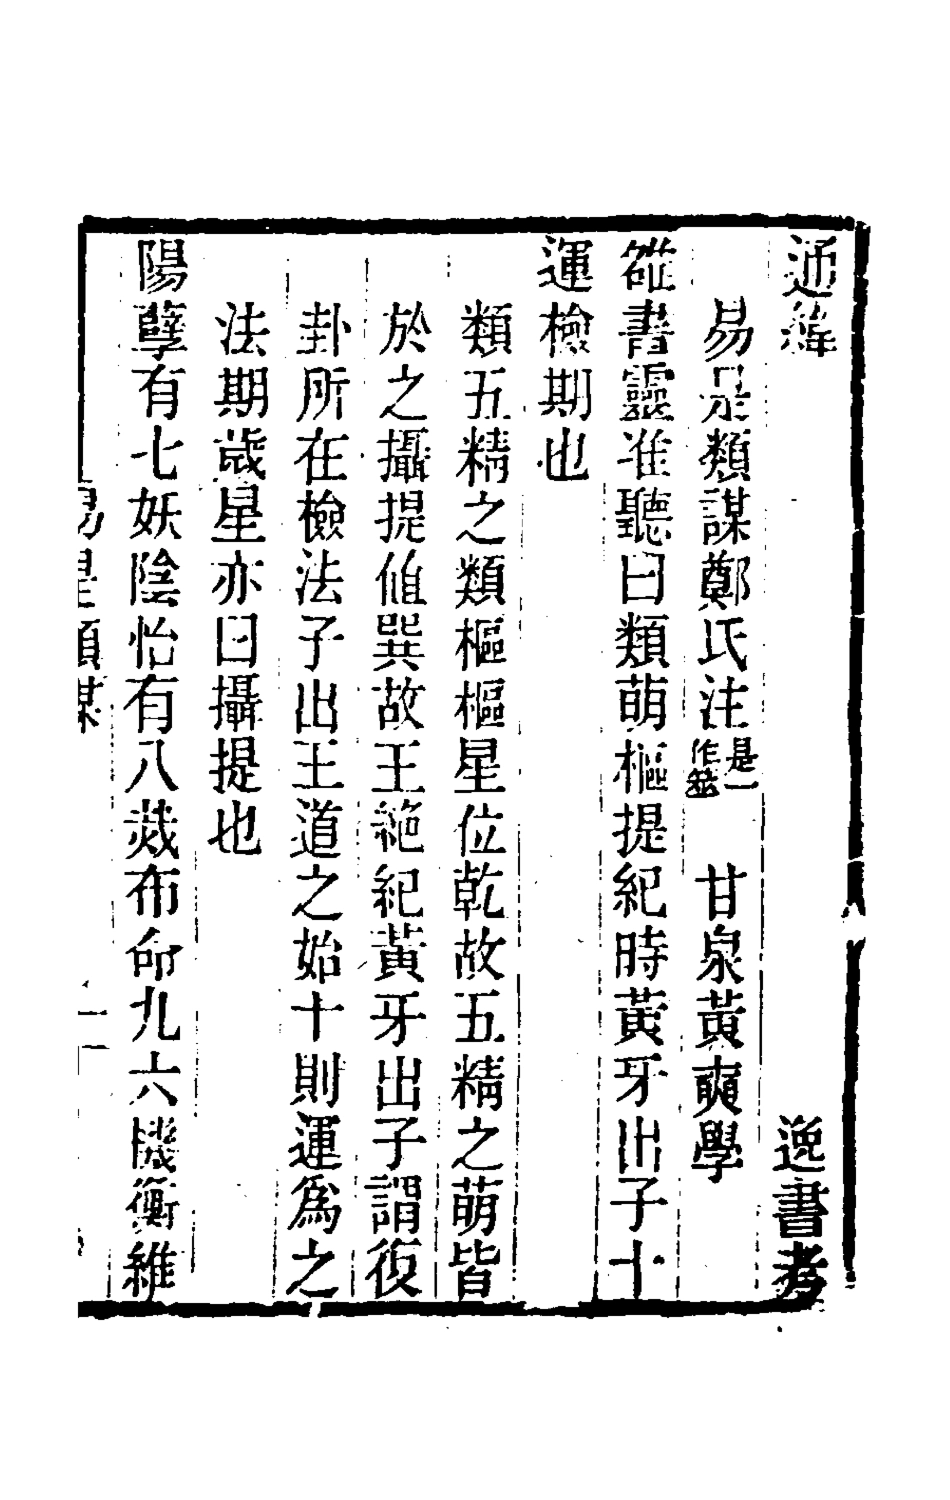 通緯　逸書考
易是類謀鄭氏注是一作筮　甘泉黃奭學
雒書靈准聽曰類萌樞提紀時黃牙出子十
運檢期也
類五精之類樞樞星位乾故五精之萌皆
於之攝提值巽故王絶紀黃牙出子謂復
卦所在檢法子出王道之始十則運爲之
法期歲星亦曰攝提也
陽孽有七妖陰怡有八烖布命九六機衡維
易是類謀　一